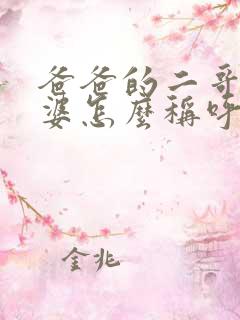 爸爸的二哥
婆怎麼稱呼
金兆